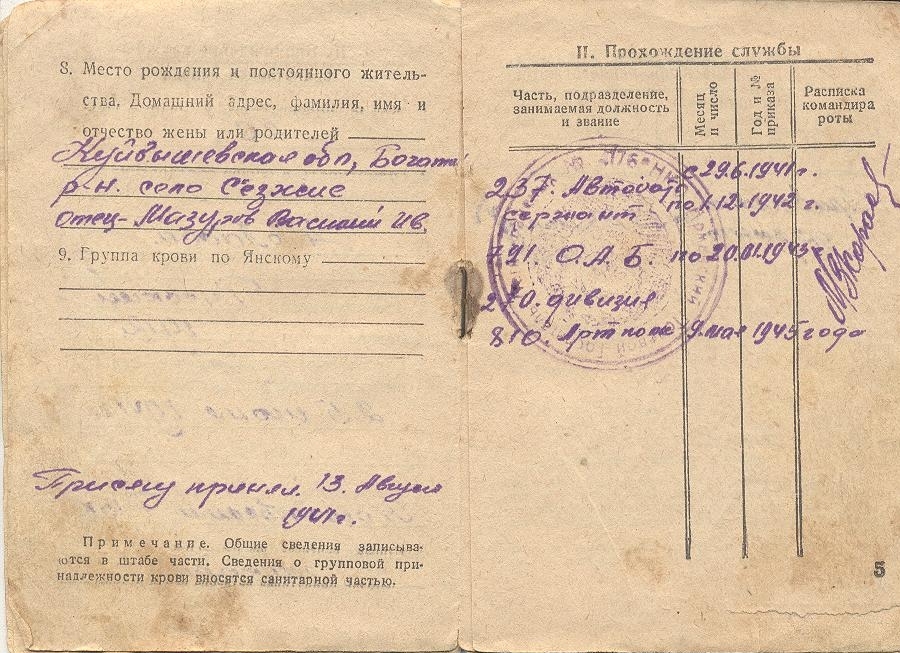 8. Место рождения и постоянного житель-
ства. Домашний адрес, фамилия, имя и
отчество жены или родителей
Куйбышевская обл, Богат
р-н. село Съезжие
отец-Мазуров Василий Ив.
9. Группа крови по Янскому
Присягу принял. 13. Август
1941г.
Примечание. Общие сведения записыва-
ются в штабе части. Сведения о групповой при-
надлежности крови вносятся санитарной частью.
II. Прохождение службы
Часть, подразделение,
занимаемая должность
и звание
Месяц
и число
Год и №
приказа
Расписка
командира
роты
237. Автобат с 29.6.1941 г.
сержант по 1.12.1942 г.
791. О.А.Б. по 20.01.1943 г
270. дивизия
810. Артполк -9 мая 1945 года
5